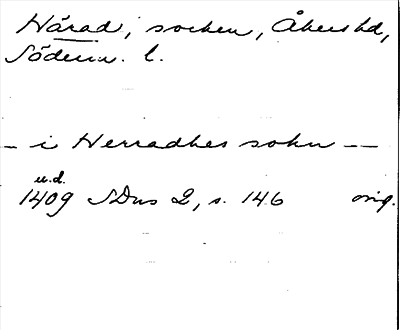 Härad, socken, Åkers hd,
Söderm. l.
— i Herradhes sokn — —
u.d.
1409 SDns 2, s. 146 orig.